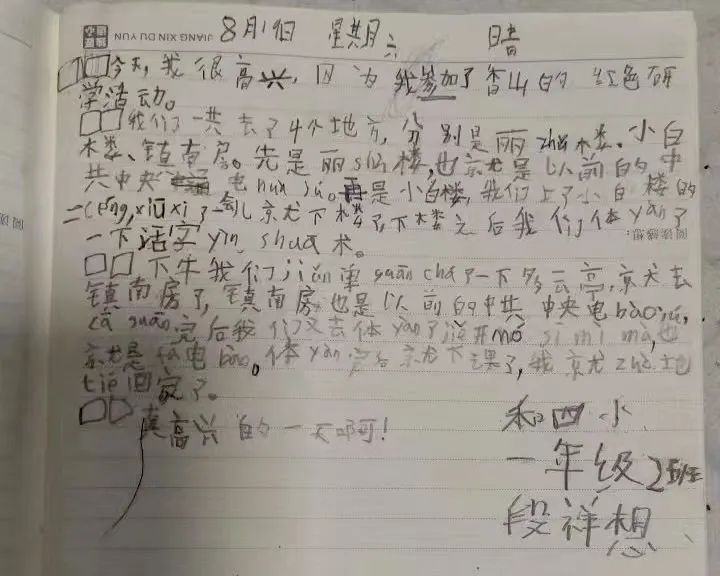 JIANG XIN DU YUN 8月19日 星期六 晴
今天,我很高兴,因为我参加了香山的红色研
学活动。
我们一共去了4个地方,分别是丽zhū楼、小白
木楼、镇南房。先是丽 楼,也京尤是以前的中
共中央 电 。再是小白楼,我们上了小白楼的
二céng,xiū xi了一会儿京尤下楼了,下楼之后我们体yàn了
一下活字yìn shuā术。
下午我们jiǎn单guān chá了一下多云亭,京尤去
镇南房了,镇南房也是以前的中共中央电bào ,
cā guān完后我们又去体yàn了 mó sī mì mǎ,也
京尤是fā电bào。体yàn完后京尤下课了,我京尤zhè地
tiě回家了。
真高兴的一天啊!
和四小
一年级2班
段祥想